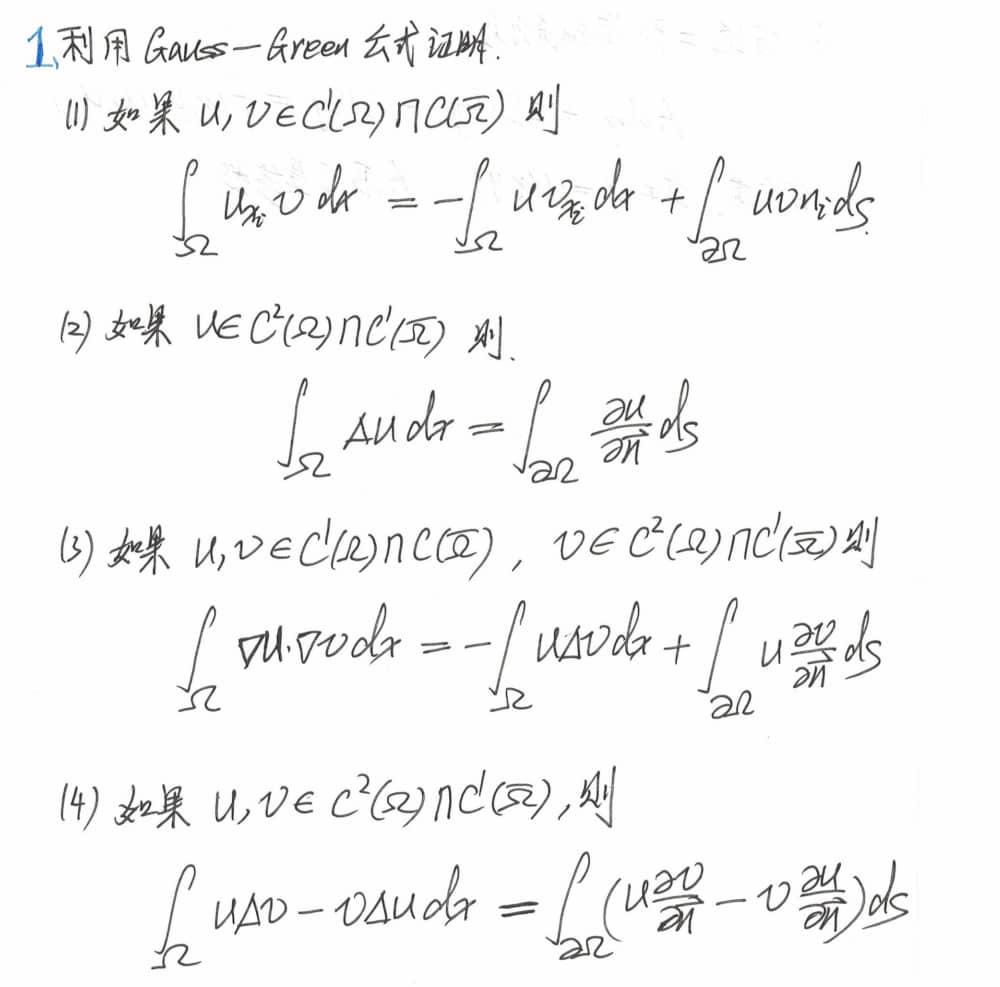 1. 利用 Gauss-Green 公式证明.
(1) 如果 u, v ∈ C¹(Ω) ∩ C(Ω̄) 则
∫_Ω u_{x_i} v dx = -∫_Ω u v_{x_i} dx + ∫_{∂Ω} u v n_i ds.
(2) 如果 u ∈ C²(Ω) ∩ C¹(Ω̄) 则.
∫_Ω Δu dx = ∫_{∂Ω} ∂u/∂n⃗ ds
(3) 如果 u, v ∈ C¹(Ω) ∩ C(Ω̄), v ∈ C²(Ω) ∩ C¹(Ω̄) 则
∫_Ω ∇u·∇v dx = -∫_Ω uΔv dx + ∫_{∂Ω} u ∂v/∂n⃗ ds
(4) 如果 u, v ∈ C²(Ω) ∩ C¹(Ω̄), 则
∫_Ω uΔv - vΔu dx = ∫_{∂Ω} (u ∂v/∂n⃗ - v ∂u/∂n⃗) ds